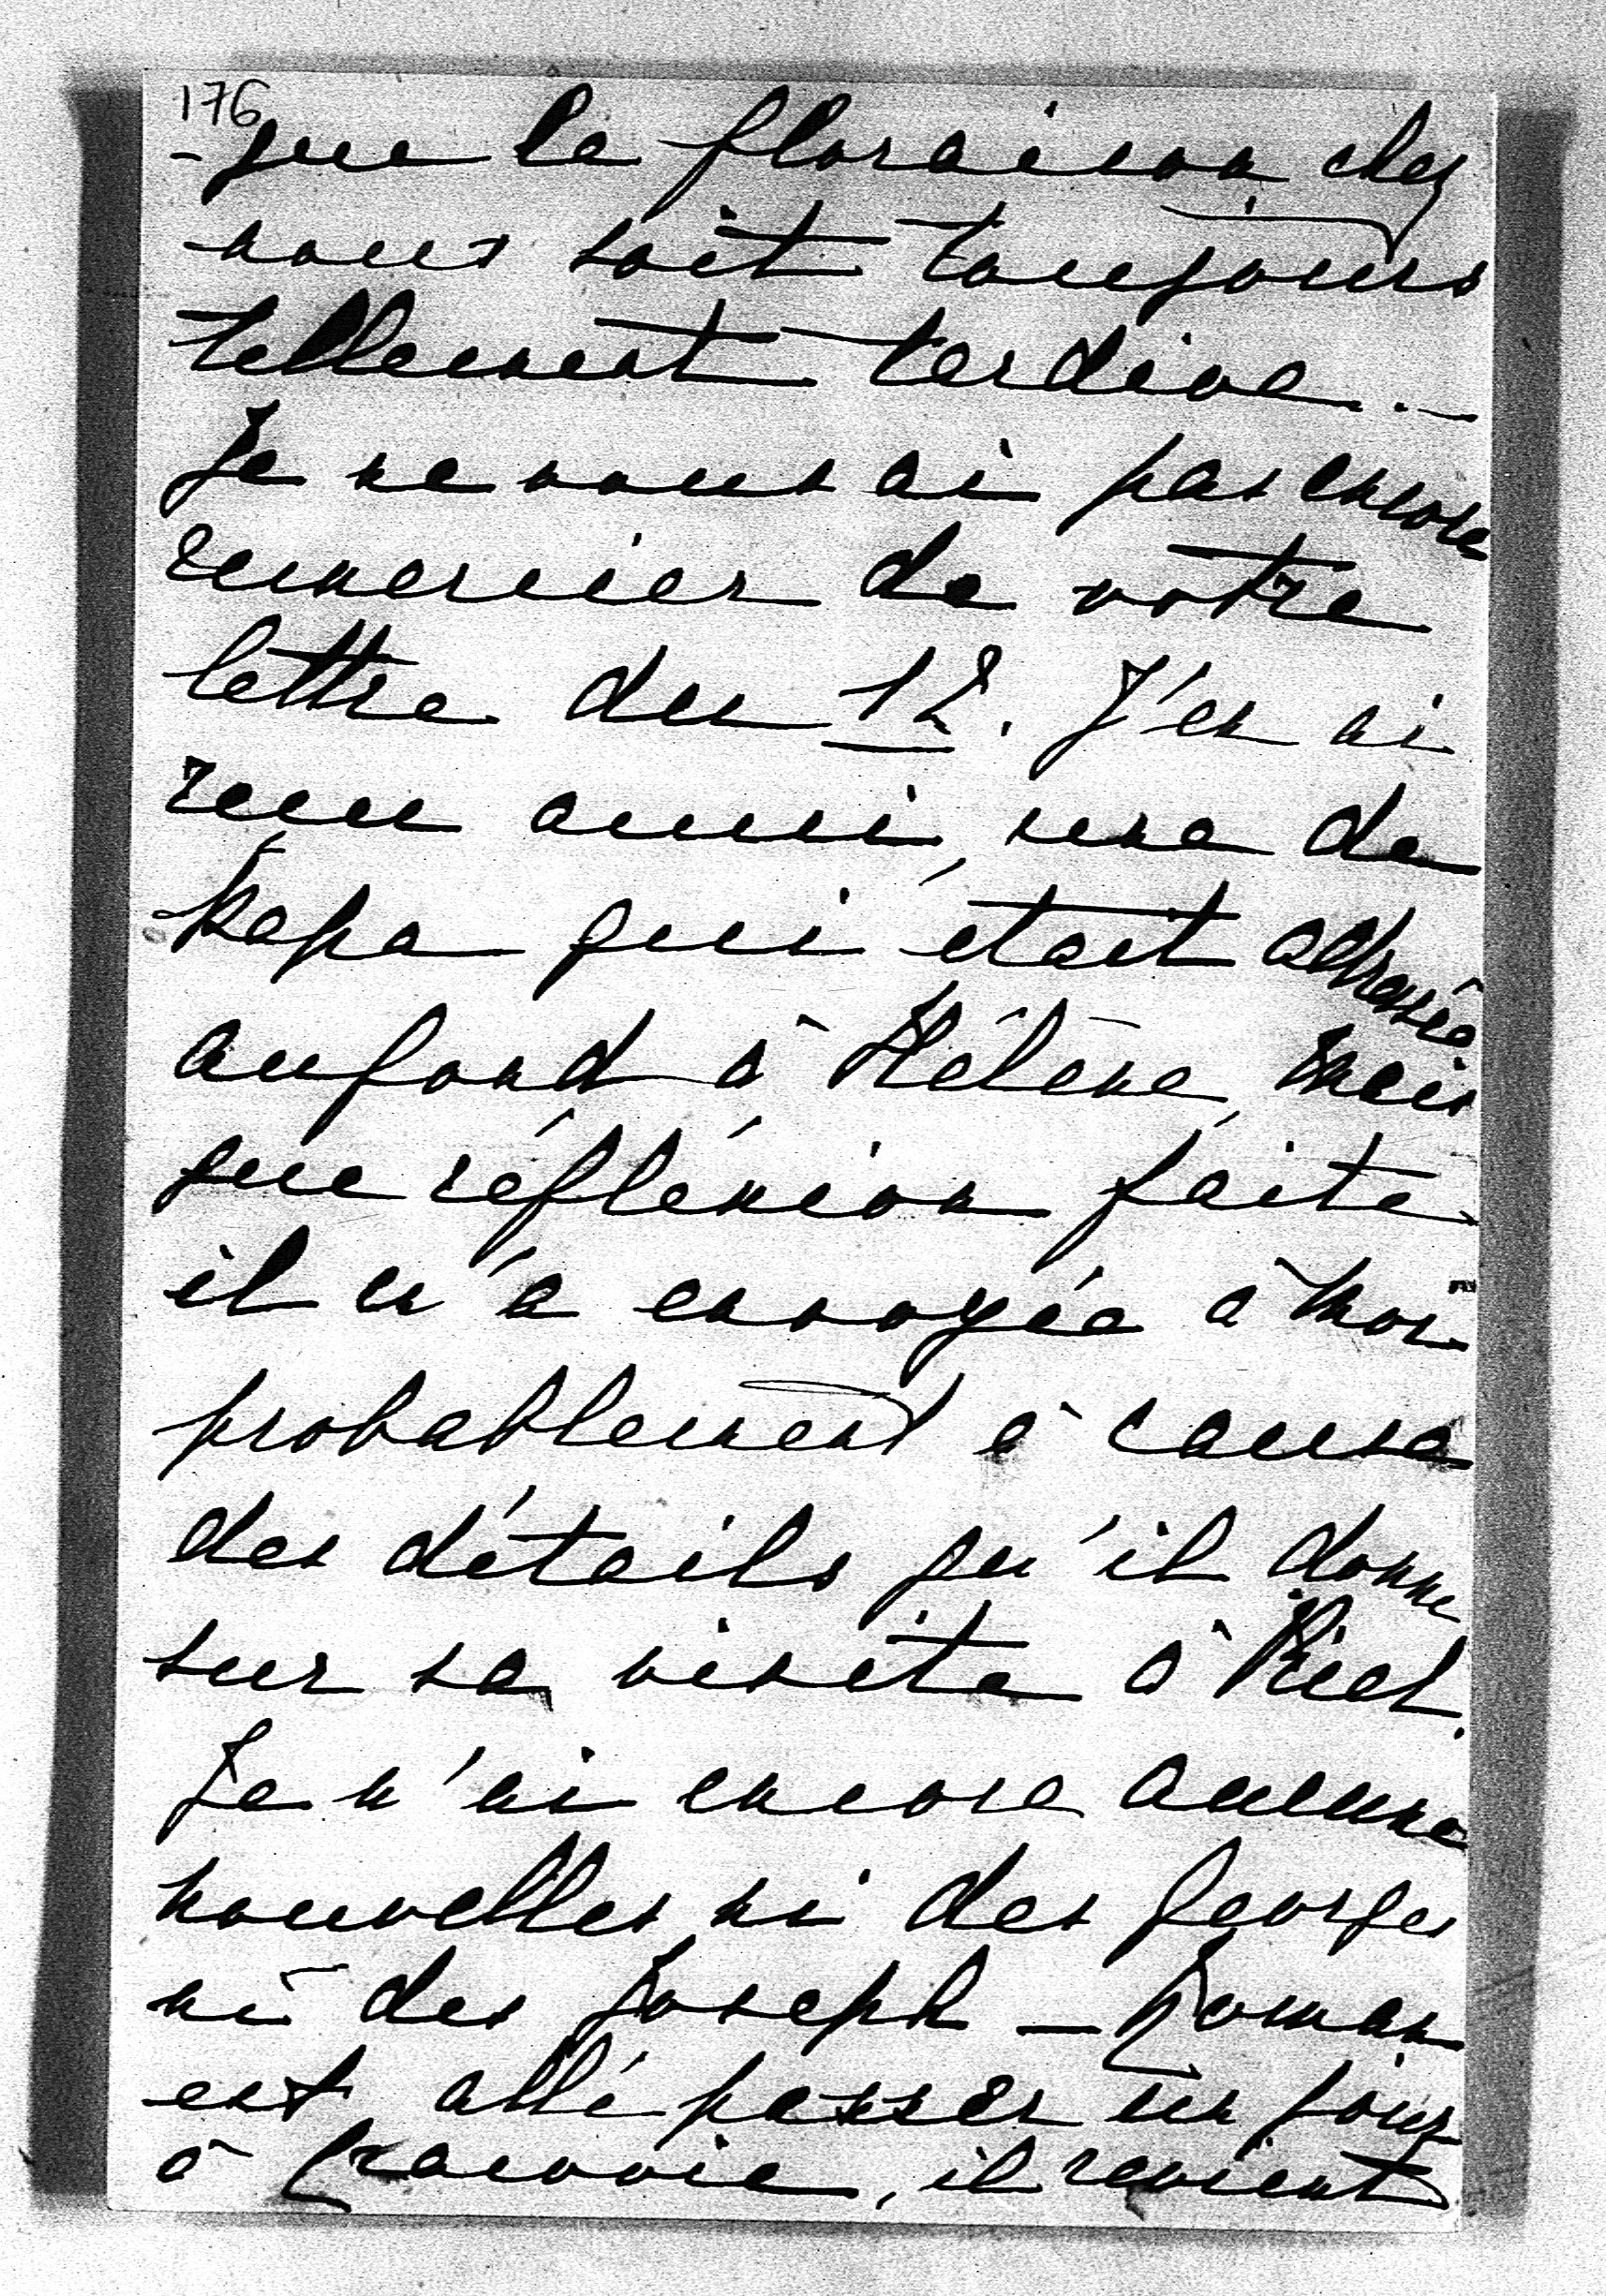 176
-que la floraison chez
nous soit toujours
tellement tardive...
Je ne vous ai pas encore
remercier de votre
lettre du 12. J'en ai
reçu aussi, une de
Papa qui était adressée
au fond à Hélène, mais
que réfléxion faite
il m'a envoyée à moi
probablement à cause
des détails qu'il donne
sur sa visite à
Je n'ai encore aucune
nouvelles ni des Georges
ni des Joseph – Roman
est allé passer un jour
à Cracovie, il revient